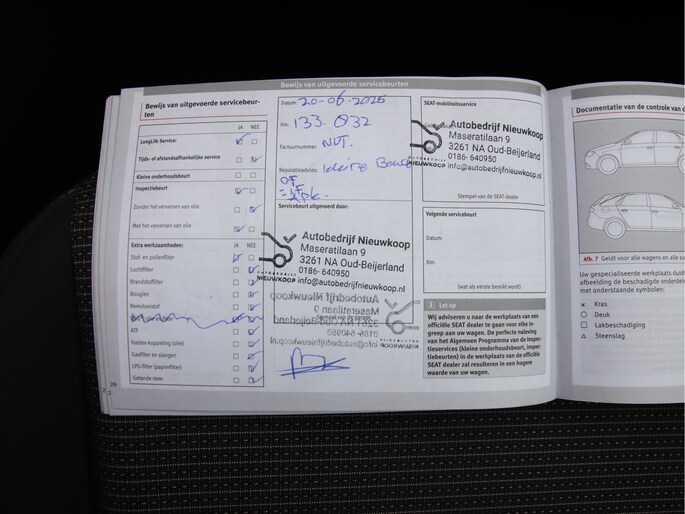 Bewijs van uitgevoerde servicebeurten
Bewijs van uitgevoerde servicebeur-
ten
JA NEE
LongLife Service:
Tijds- of afstandsafhankelijke service
Kleine onderhoudsbeurt
Inspectiebeurt
Zonder het verversen van olie
Met het verversen van olie
Extra werkzaamheden:
JA NEE
Stof- en pollenfilter
Luchtfilter
Brandstoffilter
Bougies
Remvloeistof
ATF
Haldex-koppeling (olie)
Gasfilter en slangen
LPG-filter (papierfilter)
Getande riem
Datum: 20-06-2025
Km: 133.032
Factuurnummer: NVT.
Reparatieadvies: kleine Beurt
of
Servicebeurt uitgevoerd door:
Autobedrijf Nieuwkoop
Maseratilaan 9
3261 NA Oud-Beijerland
0186- 640950
NIEUWKOOP info@autobedrijfnieuwkoop.nl
SEAT-mobiliteitsservice
Autobedrijf Nieuwkoop
Maseratilaan 9
3261 NA Oud-Beijerland
0186- 640950
NIEUWKOOP info@autobedrijfnieuwkoop.nl
Stempel van de SEAT dealer
Volgende servicebeurt
Datum:
Km:
(wat als eerste bereikt wordt)
Let op
Wij adviseren u naar de werkplaats van een
officiële SEAT dealer te gaan voor elke in-
greep aan uw wagen. De perfecte naleving
van het Algemeen Programma van de Inspec-
tieservices (kleine onderhoudsbeurt, inspec-
tiebeurten) in de werkplaats van de officiële
SEAT dealer zal resulteren in een hogere
waarde van uw wagen.
Documentatie van de controle van d
Afb. 7 Geldt voor alle wagens en alle so
Uw gespecialiseerde werkplaats duidt
afbeelding de beschadigde onderdele
met onderstaande symbolen:
× Kras
○ Deuk
□ Lakbeschadiging
△ Steenslag